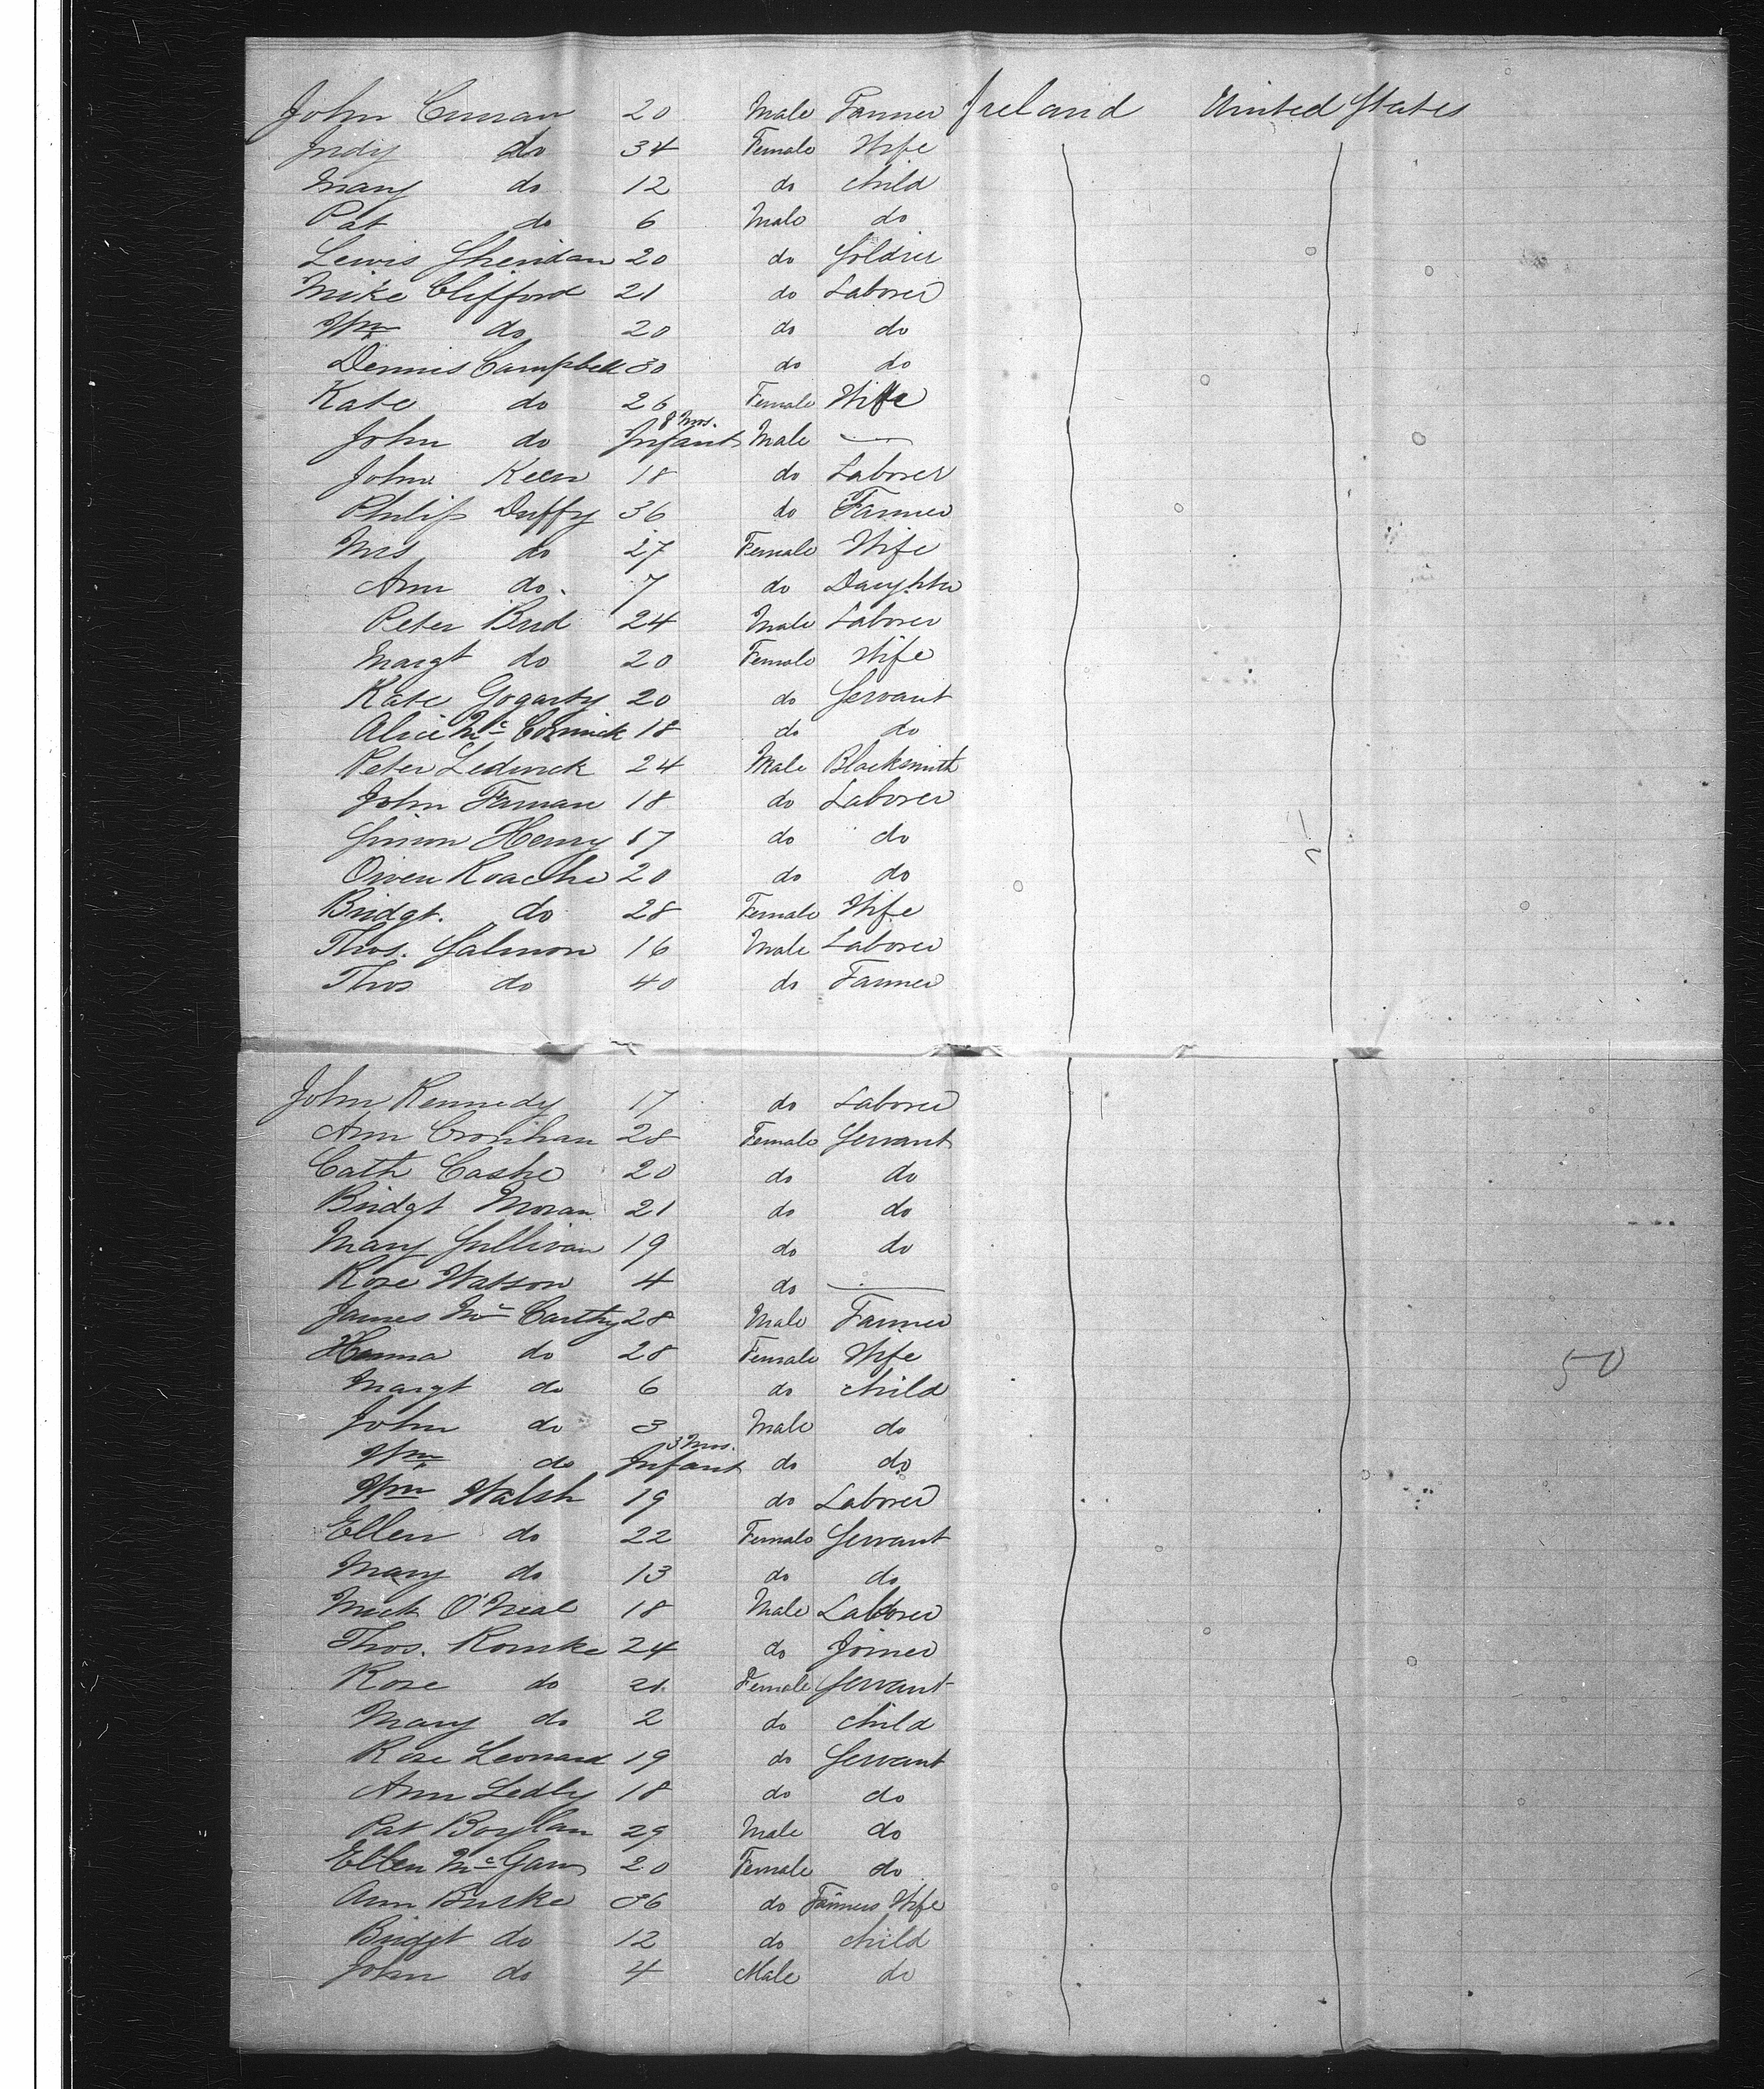 John Curran 20 Male Farmer Ireland United States
Judy do 34 Female Wife
Mary do 12 do child
Pat do 6 Male do
Lewis Sheridan 20 do Soldier
Mike Clifford 21 do Laborer
Wm do 20 do do
Dennis Campbell 30 do do
Kate do 26 Female Wife
John do Infant 8 mos. Male —
John Keen 18 do Laborer
Philip Duffy 36 do Farmer
Mrs do 27 Female Wife
Ann do. 7 do Daughter
Peter Bird 24 Male Laborer
Margt do 20 Female Wife
Kate Gogarty 20 do Servant
Alice McCormick 18 do do
Peter Ledwick 24 Male Blacksmith
John Farnan 18 do Laborer
Simon Henry 17 do do
Owen Roache 20 do do
Bridgt. do 28 Female Wife
Thos. Salmon 16 Male Laborer
Thos do 40 do Farmer
John Kennedy 17 do Laborer
Ann Cronihan 28 Female Servant
Cath Cashe 20 do do
Bridgt Moran 21 do do
Mary Sullivan 19 do do
Rose Watson 4 do —
James McCarthy 28 Male Farmer
Hanna do 28 Female Wife
Margt do 6 do child
John do 3 Male do
Wm do Infant 3 mos. do do
Wm Walsh 19 do Laborer
Ellen do 22 Female Servant
Mary do 13 do do
Mick O'Neal 18 Male Laborer
Thos. Rourke 24 do Joiner
Rose do 21 Female Servant
Mary do 2 do child
Rose Leonard 19 do Servant
Ann Ledly 18 do do
Pat Boylan 29 Male do
Ellen McGann 20 Female do
Ann Burke 36 do Farmers Wife
Bridgt do 12 do child
John do 4 Male do
50